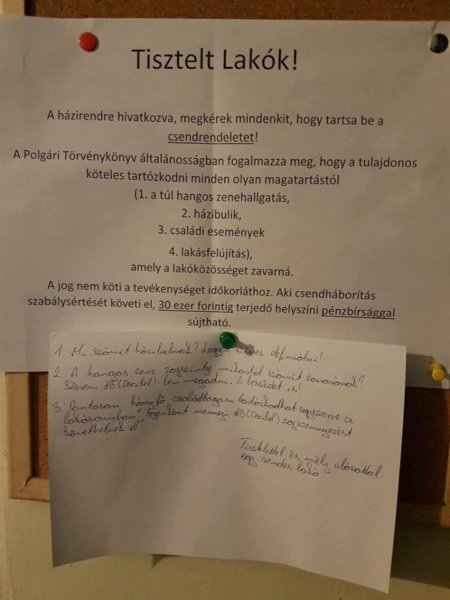 Tisztelt Lakók!
A házirendre hivatkozva, megkérek mindenkit, hogy tartsa be a
csendrendeletet!
A Polgári Törvénykönyv általánosságban fogalmazza meg, hogy a tulajdonos
köteles tartózkodni minden olyan magatartástól
(1. a túl hangos zenehallgatás,
2. házibulik,
3. családi események
4. lakásfelújítás),
amely a lakóközösséget zavarná.
A jog nem köti a tevékenységet időkorláthoz. Aki csendháborítás
szabálysértését követi el, 30 ezer forintig terjedő helyszíni pénzbírsággal
sújtható.
1. Mi számít házibulinak? Legyen definiálni!
2. A hangos zene mitől számít zavarónak?
dB (Decibel)-ben megadni. A is!
3. Pontosan hány fő családtagom tartózkodhat egyszerre a
lakásomban? dB (Decibel)
követhetnek el?
Tisztelettel és mély alázattal:
egy rendes lakó